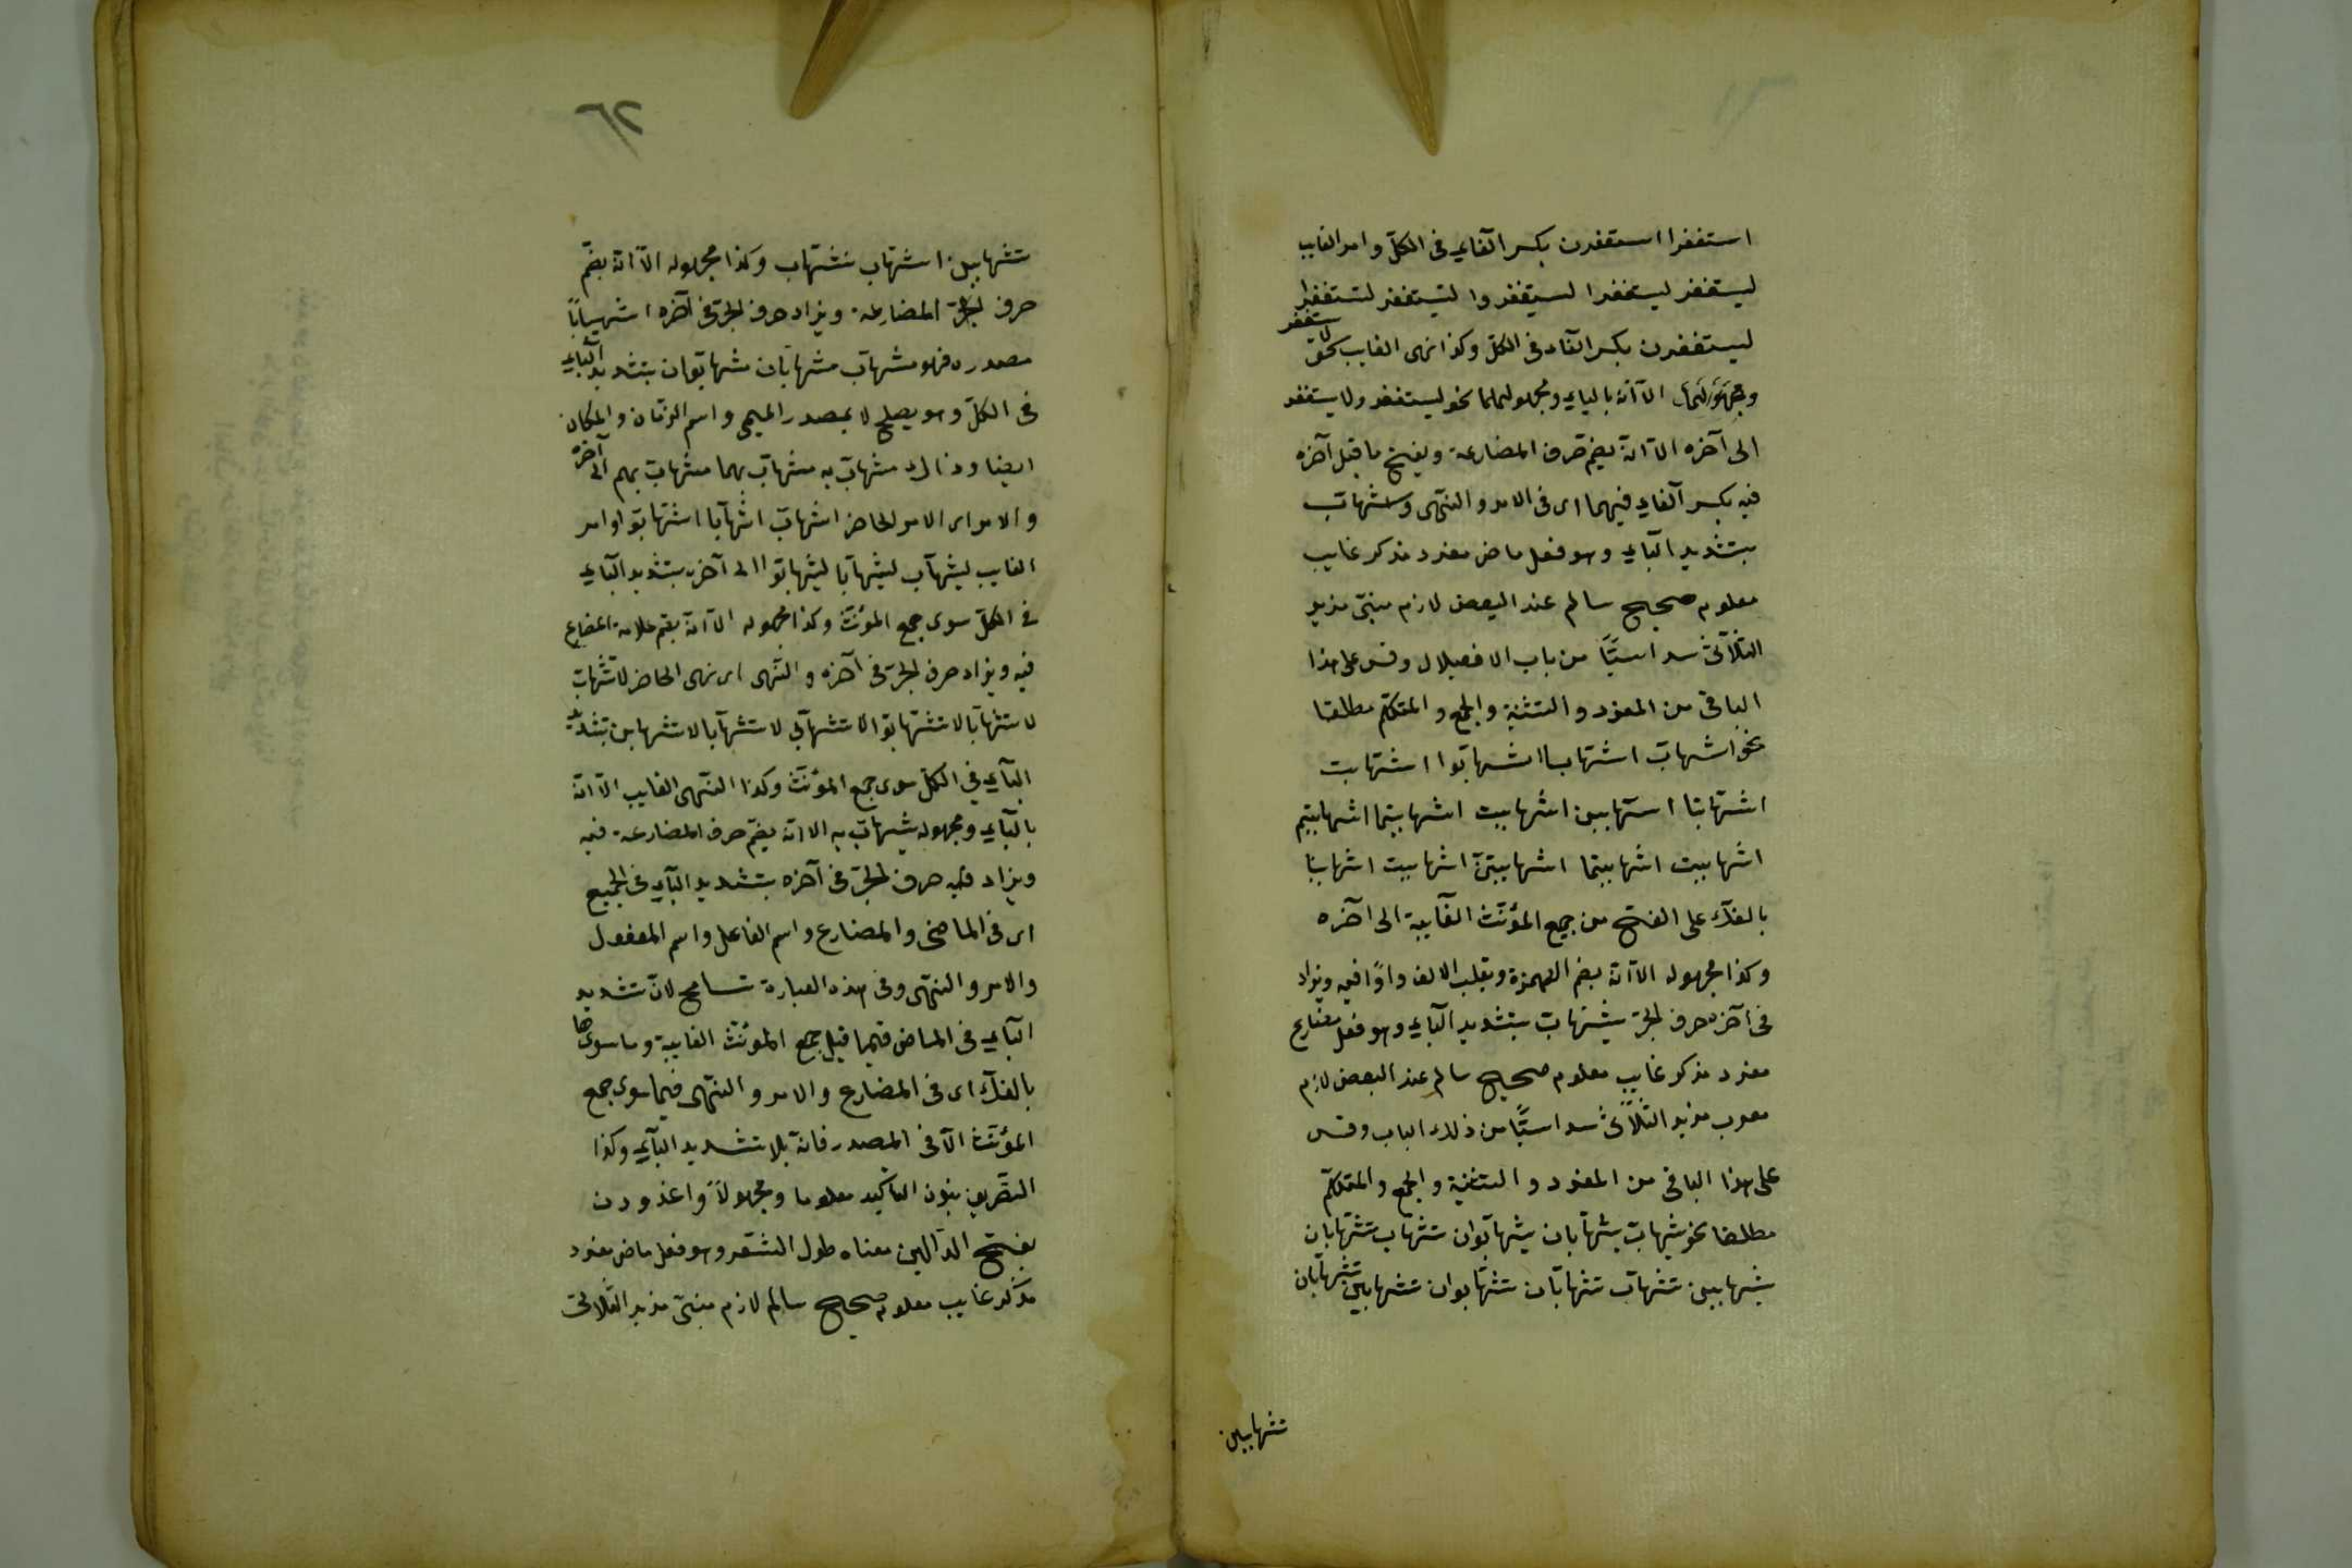 استغفرا استغفرن بكسر الفاء فى الكل وامر الغايب
ليستغفر ليستغفرا ليستغفروا لتستغفر لتستغفرا
ليستغفرن بكسر الفاء فى الكل وكذا نهى الغايب نحو لا يستغفر
الا انه بالياء ومجهولهما نحو ليستغفر ولا يستغفر
الى آخره الا انه بضم حرف المضارعة وبفتح ما قبل آخره
فيه بكسر الفاء فيهما اى فى الامر والنهى واشهاب
بتشديد الباء وهو فعل ماض مفرد مذكر غايب
معلوم صحيح سالم عند البعض لازم مبنى مزيد
الثلاثى سداسيًا من باب الافعيلال وقس على هذا
الباقى من المفرد والتثنية والجمع والمتكلم مطلقا
نحو اشهاب اشهابا اشهابوا اشهابت
اشهابتا اشهاببن اشهاببت اشهاببتما اشهاببتم
اشهاببت اشهاببتما اشهاببتن اشهاببت اشهاببنا
بالفك على الفتح من جمع المؤنث الغايبة الى آخره
وكذا مجهوله الا انه بضم الهمزة وبقلب الالف واوًا فيه ويزاد
فى آخره حرف الجر يشهاب بتشديد الباء وهو فعل مضارع
مفرد مذكر غايب معلوم صحيح سالم عند البعض لازم
معرب مزيد الثلاثى سداسيًا من ذلك الباب وقس
على هذا الباقى من المفرد والتثنية والجمع والمتكلم
مطلقا نحو يشهاب يشهابان يشهابون تشهاب تشهابان
يشهاببن تشهاب تشهابان تشهابون تشهابين تشهابان
تشهاببن
٦٢
تشهاببن اشهاب نشهاب وكذا مجهوله الا انه بضم
حرف المضارعة ويزاد حرف الجر فى آخره اشهيبابًا
مصدره فهو مشهاب مشهابان مشهابون بتشديد الباء
فى الكل وهو يصلح لا بمصدر الميمى واسم الزمان والمكان
ايضا وذاك مشهاب به مشهاب بهما مشهاب بهم الى آخره
والامر اى الامر الحاضر اشهاب اشهابا اشهابوا وامر
الغايب ليشهاب ليشهابا ليشهابوا الى آخره بتشديد الباء
فى الكل سوى جمع المؤنث وكذا مجهوله الا انه بضم علامة المضارع
فيه ويزاد حرف الجر فى آخره والنهى اى نهى الحاضر لا تشهاب
لا تشهابا لا تشهابوا لا تشهابى لا تشهابا لا تشهاببن بتشديد
الباء فى الكل سوى جمع المؤنث وكذا النهى الغايب الا انه
بالياء ومجهوله يشهاب به الا انه بضم حرف المضارعة فيه
ويزاد فيه حرف الجر فى آخره بتشديد الباء فى الجميع
اى فى الماضى والمضارع واسم الفاعل واسم المفعول
والامر والنهى وفى هذه العبارة تسامح لان تشديد
الباء فى الماضى فيما قبل جمع المؤنث الغايبة وما سواها
بالفك اى فى المضارع والامر والنهى فيما سوى جمع
المؤنث الا فى المصدر فانه بلا تشديد الباء وكذا
التصريف بنون التأكيد معلوما ومجهولاً واغدودن
بفتح الدالين معناه طول الشعر وهو فعل ماض مفرد
مذكر غايب معلوم صحيح سالم لازم مبنى مزيد الثلاثى